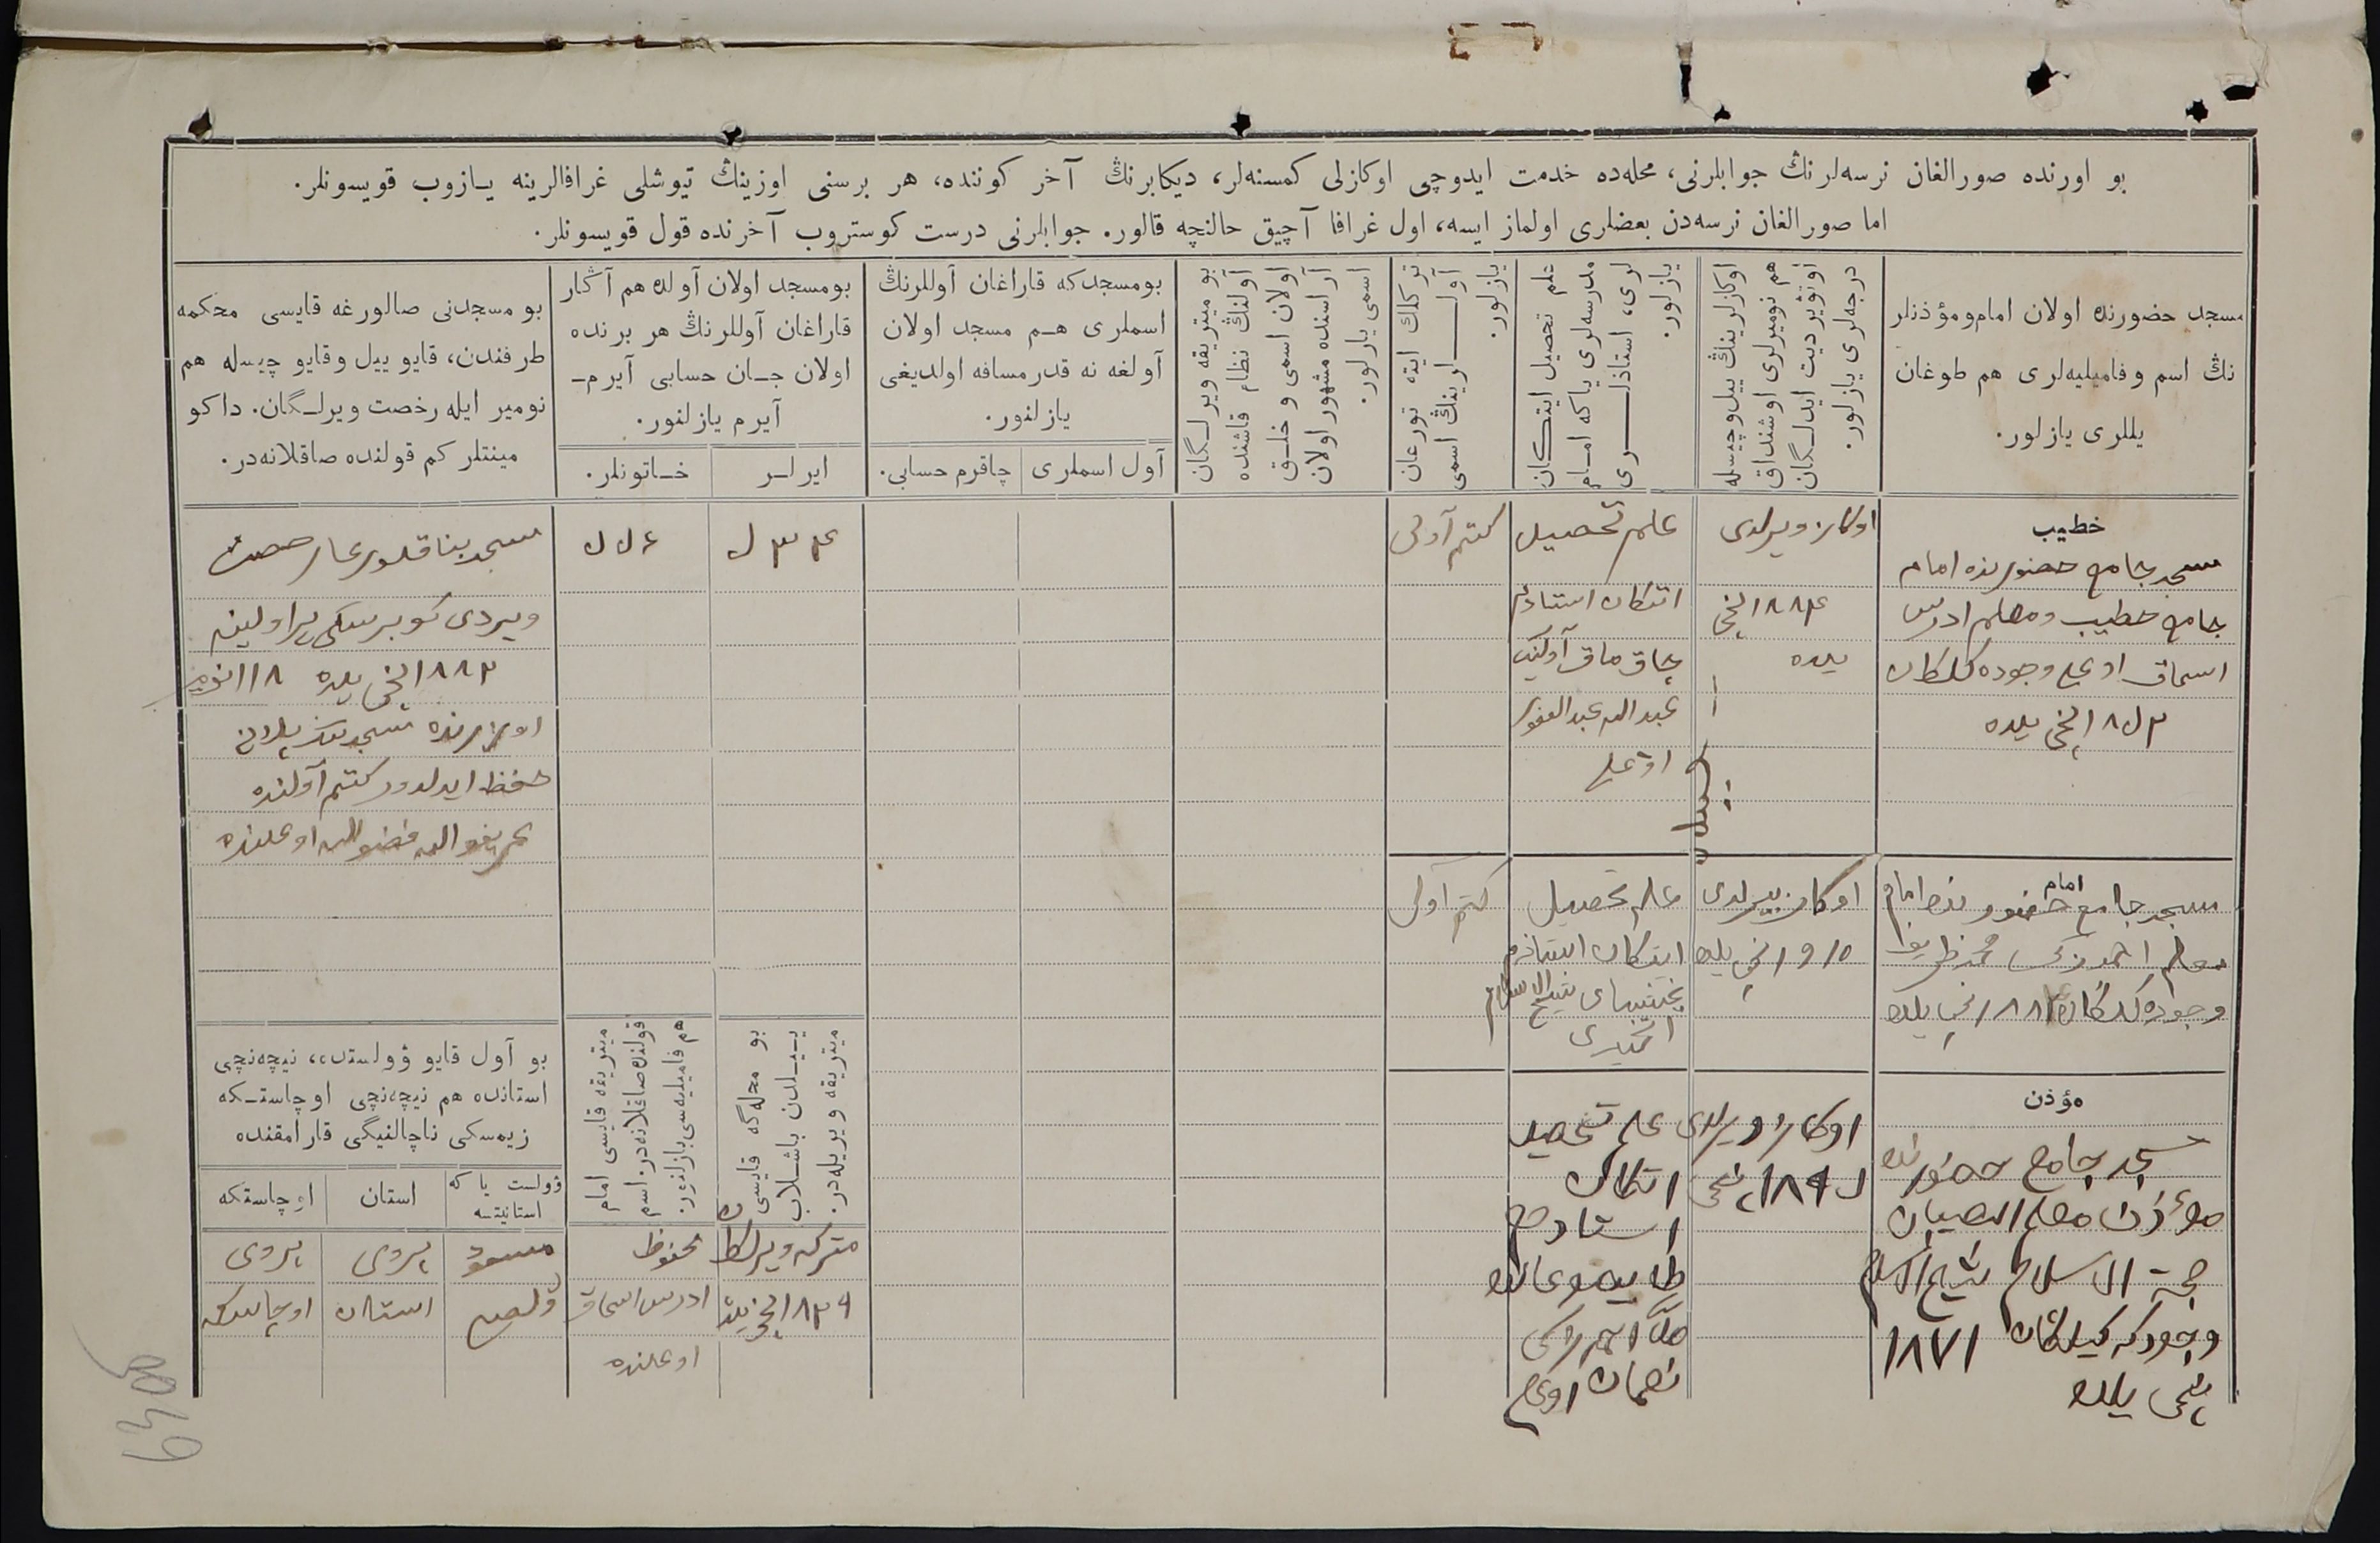 بو اورنده صورالغان نرسه‌لرنڭ جوابلرنی، محله‌ده خدمت ایدوچی اوکازلی کمسنه‌لر، دیکابرنڭ آخر کوننده، هر برسنی اوزینڭ تیوشلی غرافالرینه یازوب قویسونلر.
اما صورالغان نرسه‌دن بعضلری اولماز ایسه، اول غرافا آچیق حالنچه قالور. جوابلرنی درست کوستروب آخرنده قول قویسونلر.
مسجد حضورنده اولان امام و مؤذنلر
نڭ اسم و فامیلیه‌لری هم طوغان
یللری یازلور.
اوکازلرینڭ ییل و چیسله
هم نومیرلری اوشنداق
اوتویردیت ایدلگان
درجه‌لری یازلور.
علم تحصیل ایتکان
مدرسه‌لری یا که امام
لری، استاذلری
یازلور.
ترکلک ایته تورغان
آوللرینڭ اسمی
یازلور.
بو میتریقه ویرلگان
آولنڭ نظام قاشنده
اولان اسمی و خلق
آراسنده مشهور اولان
اسمی یازلور.
بو مسجدکه قاراغان آوللرنڭ
اسملری هم مسجد اولان
آولغه نه قدر مسافه اولدیغی
یازلنور.
آول اسملری
چاقرم حسابی.
بو مسجد اولان آولده هم آڭار
قاراغان آوللرنڭ هر برنده
اولان جان حسابی آیرم-
آیرم یازلنور.
ایرلر
خاتونلر.
بو مسجدنی صالورغه قایسی محکمه
طرفندن، قایو ییل و قایو چیسله هم
نومیر ایله رخصت ویرلگان. داکو
مینتلر کم قولنده صاقلانه‌در.
خطیب
مسجد جامع حضورنده امام
جامع خطیب و معلم ادریس
اسحاق اوغلی وجوده کلکان
نچی یلده
اوکاز ویرلدی
۱۸۸۴ نچی
یلده
علم تحصیل
اتکان استاذم
آولینڭ
عبدالله عبدالغفور
اوغلی
کتم آولی
مسجد بنا قلورغا رخصت
ویردی کوبرسکی پراولینه
۱۸۸۳ نچی یلده ۱۸ نچی
مسجدنڭ پلانی
حفظ ایدلدور کتم آولنده
اوغلنده
امام
مسجد جامع حضورنده امام
معلم احمد زکی
وجوده کلگان نچی یلده
اوکاز بیرلدی
۱۹۱۵ نچی یلده
علم تحصیل
ایتکان استاذم
شیخ الاسلام
کتم آولی
مؤذن
مسجد جامع حضورنده
مؤذن معلم الصبیان
حجة الاسلام شیخ الاسلام
وجودکه کیلکان ۱۸۷۱
نچی یلده
اوکاز ویرلدی
نچی
علم تحصیل
اتکان
استاذم
ملا احمد زکی
نعمان اوغلی
بو محله‌گه قایسی
ییلدن باشلاب
میتریقه ویریله‌در.
میتریقه قایسی امام
قولنده صاقلانه‌در: اسم
هم فامیلیه‌سی یازلنور.
بو آول قایو وولستده، نیچه‌نچی
استانده هم نیچه‌نچی اوچاستکه
زیمسکی ناچالنیگی قارامقنده
وولست یا که
استانیتسه
استان
اوچاستکه
مترکه ویرلکان
۱۸۲۹ نچی یلده
محفوظ
ادریس اسحاق
اوغلنده
پروی
استان
پروی
اوچاستکه